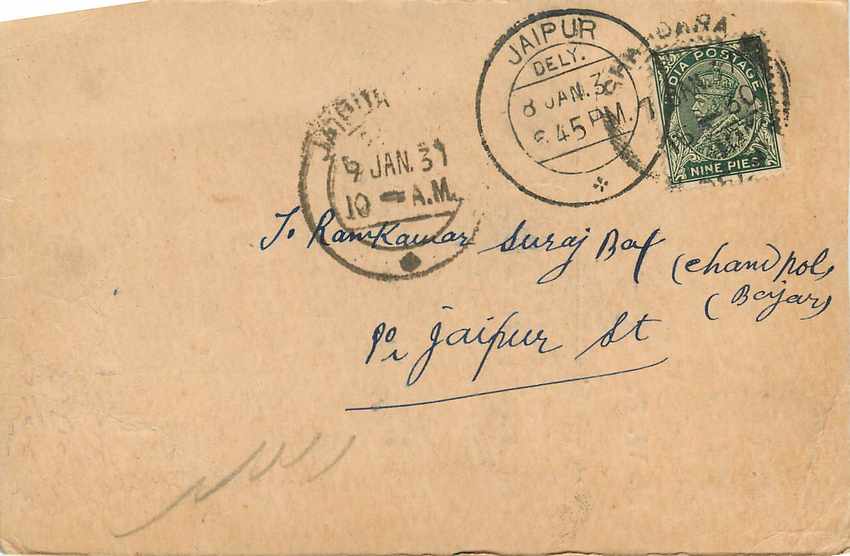 JAIPUR
DELY.
8 JAN. 3
6.45 PM.
SHAHDARA
INDIA POSTAGE
NINE PIES
9 JAN. 31
10 A.M.
To Ramkawar Suraj Bax
(Chandpol,
(Bajar)
Po. Jaipur St